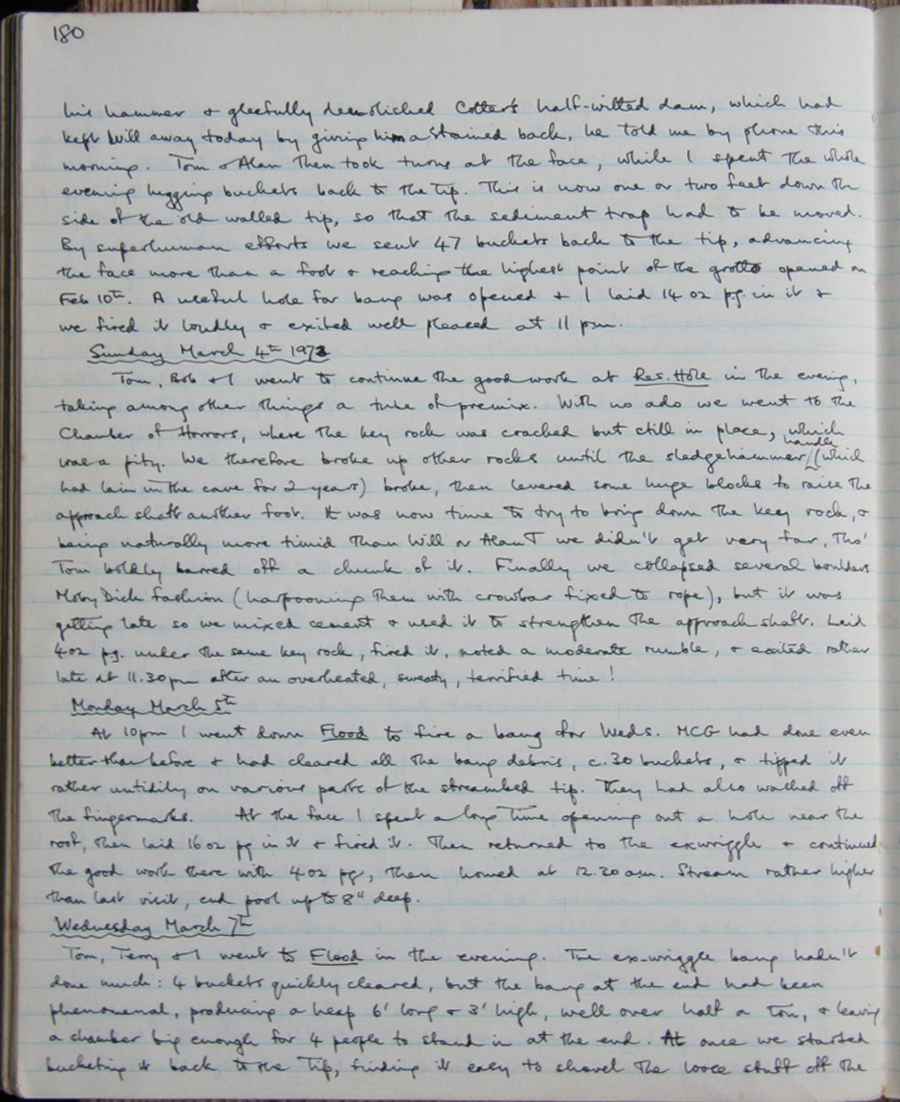 180
his hammer & gleefully demolished Cotter's half-witted dam, which had
kept Will away today by giving him a strained back, he told me by phone this
morning. Tom & Alan then took turns at the face, while I spent the whole
evening lugging buckets back to the tip. This is now one or two feet down the
side of the old walled tip, so that the sediment trap had to be moved.
By superhuman efforts we sent 47 buckets back to the tip, advancing
the face more than a foot & reaching the highest point of the grotto opened on
Feb 10th. A useful hole for bang was opened & I laid 14 oz pg. in it &
we fired it loudly & exited well pleased at 11 pm.
Sunday March 4th 1973
Tom, Bob & I went to continue the good work at Res. Hole in the evening,
taking among other things a tube of premix. With no ado we went to the
Chamber of Horrors, where the key rock was cracked but still in place, which
was a pity. We therefore broke up other rocks until the sledgehammer handle (which
had lain in the cave for 2 years) broke, then levered some huge blocks to raise the
approach shaft another foot. It was now time to try to bring down the key rock, &
being naturally more timid than Will or Alan T we didn't get very far, tho'
Tom boldly barred off a chunk of it. Finally we collapsed several boulders
Moby Dick fashion (harpooning them with crowbar fixed to rope), but it was
getting late so we mixed cement & used it to strengthen the approach shaft. Laid
4 oz pg. under the same key rock, fired it, noted a moderate rumble, & exited rather
late at 11.30 pm after an overheated, sweaty, terrified time!
Monday March 5th
At 10pm I went down Flood to fire a bang for Weds. MCG had done even
better than before & had cleared all the bang debris, c. 30 buckets, & tipped it
rather untidily on various parts of the streambed tip. They had also washed off
the fingermarks. At the face I spent a long time opening out a hole near the
roof, then laid 16 oz pg in it & fired it. Then returned to the exwriggle & continued
the good work there with 4 oz pg, then homed at 12.20 am. Stream rather higher
than last visit, end pool up to 8" deep.
Wednesday March 7th
Tom, Terry & I went to Flood in the evening. The ex-wriggle bang hadn't
done much: 4 buckets quickly cleared, but the bang at the end had been
phenomenal, producing a heap 6' long & 3' high, well over half a ton, & leaving
a chamber big enough for 4 people to stand in at the end. At once we started
bucketing it back to the Tip, finding it easy to shovel the loose stuff off the